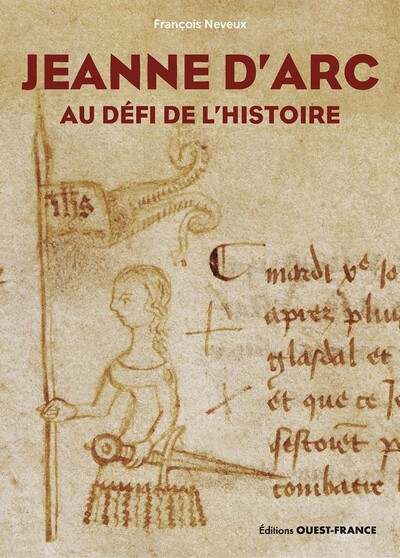 François Neveux
JEANNE D'ARC
AU DÉFI DE L'HISTOIRE
ihs
mardi
aprez
glasdal et
et que ce
combatre
Éditions OUEST-FRANCE